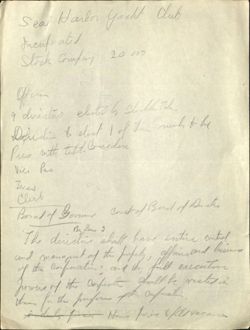 Sea Harbor Yacht Club
Incorporated
Stock Company 20 000
Officers
9 directors elected by Stockholders
Directors to elect 1 of their number to be
Pres with title Commodore
Vice Pres
Treas
Clerk
Board of Governors consist of Board of Directors
By law 2
The directors shall have entire control
and management of the property, affairs and business
of the corporation; and the full executive
powers of the corporation shall be vested in
them for the purposes of the corporation